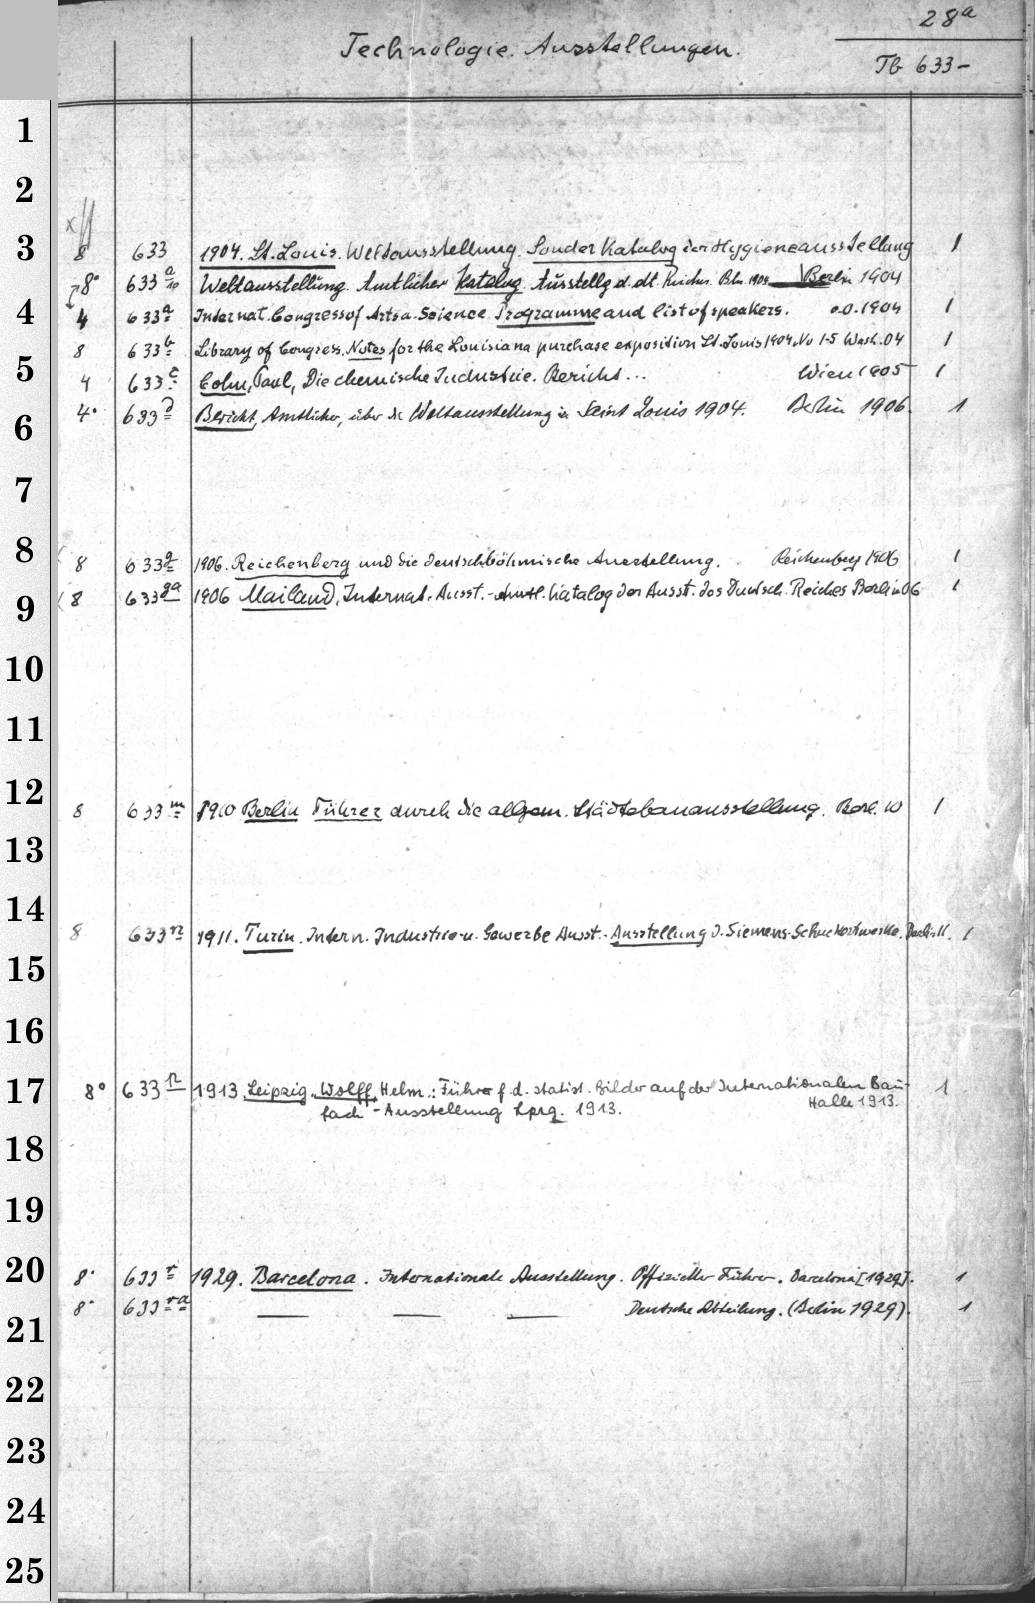 28a
Technologie. Ausstellungen.
Tb 633-
1
2
3
8 633 1904. St. Louis. Weltausstellung. Sonder Katalog der Hygieneausstellung 1
8° 633 a10 Weltausstellung. Amtlicher Katalog. Ausstellg d. dt. Reiches. Bln 1904 Berlin 1904
4
4 633a Internat. Congress of Arts a. Science. Programme and list of speakers. o.O. 1904 1
8 633b Library of Congress. Notes for the Louisiana purchase exposition St. Louis 1904. No 1-5 Wash. 04 1
5
4 633c Cohn, Paul, Die chemische Industrie. Bericht... Wien 1905 1
4° 633d Bericht, Amtlicher, über die Weltausstellung in Saint Louis 1904. Berlin 1906. 1
6
7
8
8 633g 1906. Reichenberg und die deutschböhmische Ausstellung. Reichenberg 1906 1
8 633ga 1906 Mailand, Internat. Ausst. - Amtl. Katalog der Ausst. des Deutsch. Reiches Berlin 06 1
9
10
11
12
8 633m 1910 Berlin Führer durch die allgem. Städtebauausstellung. Berl. 10 1
13
14
8 633n 1911. Turin. Intern. Industrie- u. Gewerbe Ausst. - Ausstellung d. Siemens-Schuckertwerke. Berlin 11. 1
15
16
17
8° 633p 1913. Leipzig. Wolff, Helm.: Führer f. d. statist. Bilder auf der Internationalen Bau- 1
fach - Ausstellung Lpzg. 1913. Halle 1913.
18
19
20
8° 633r 1929. Barcelona. Internationale Ausstellung. Offizieller Führer. Barcelona [1929]. 1
8° 633ra — — — Deutsche Abteilung. (Berlin 1929). 1
21
22
23
24
25